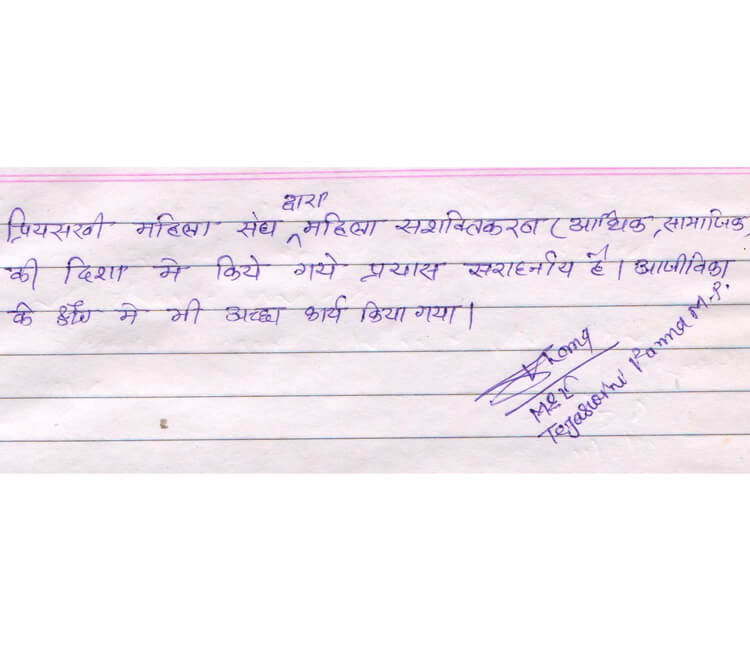 प्रियसखी महिला संघ द्वारा महिला सशक्तिकरन (आर्थिक, सामाजिक
की दिशा मे किये गये प्रयास सराहनीय है। आजीविका
के क्षेत्र मे भी अच्छा कार्य किया गया।
Tejaswini Panna M.P.